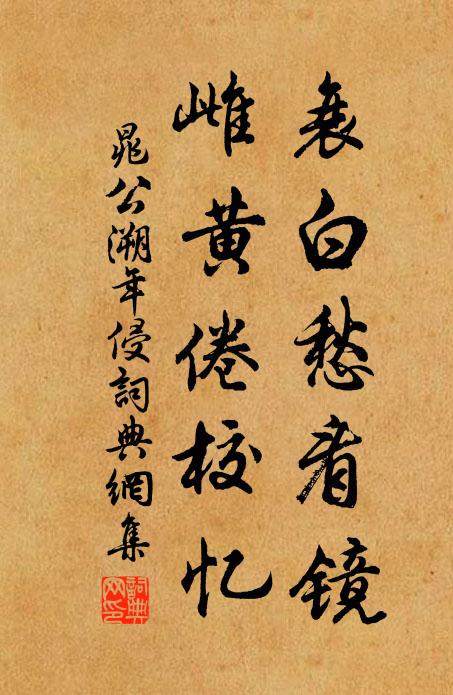 衰白愁看镜
雌黄倦校忆
晁公溯年侵詞典網集
詞典网印